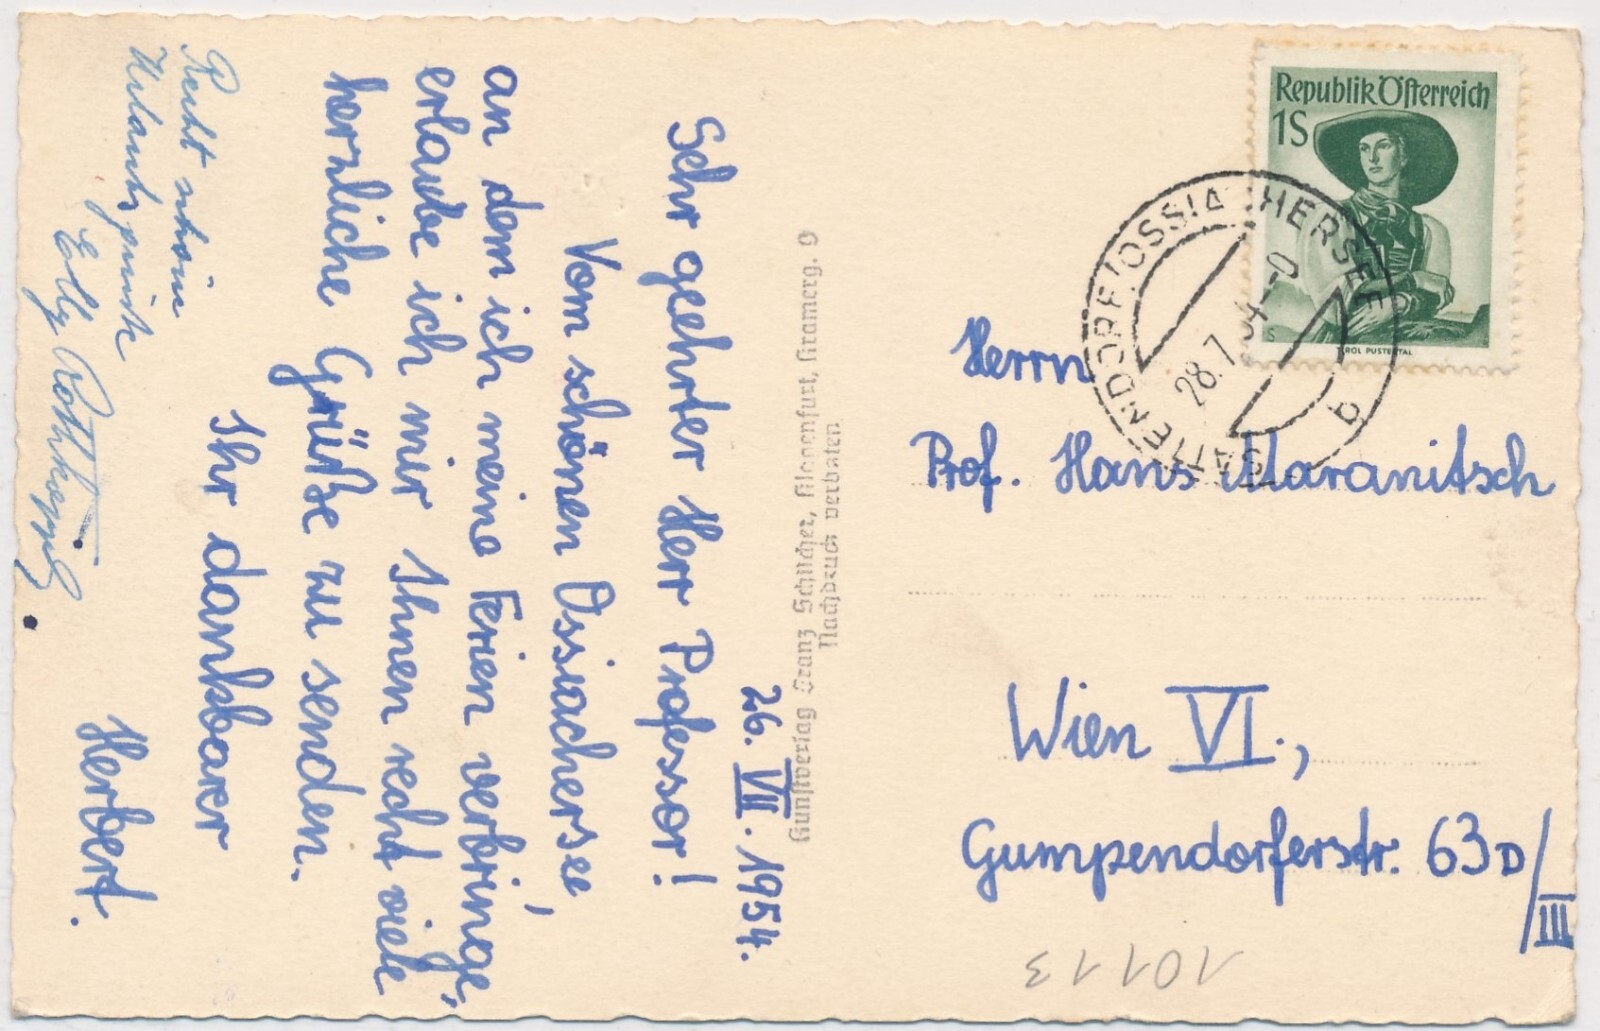 26. VII. 1954.
Sehr geehrter Herr Professor!
Vom schönen Ossiachersee,
an dem ich meine Ferien verbringe,
erlaube ich mir Ihnen recht viele
herzliche Grüße zu senden.
Ihr dankbarer
Herbert.
Recht schöne
Elly
Kunstverlag Franz Schilcher, Klagenfurt, Kramerg. 9
Nachdruck verboten
Republik Österreich
1S
TIROL PUSTERTAL
SATTENDORF/OSSIACHERSEE
28.7.54
b
Herrn
Prof. Hans Maranitsch
Wien VI.,
Gumpendorferstr. 63D/III
10113